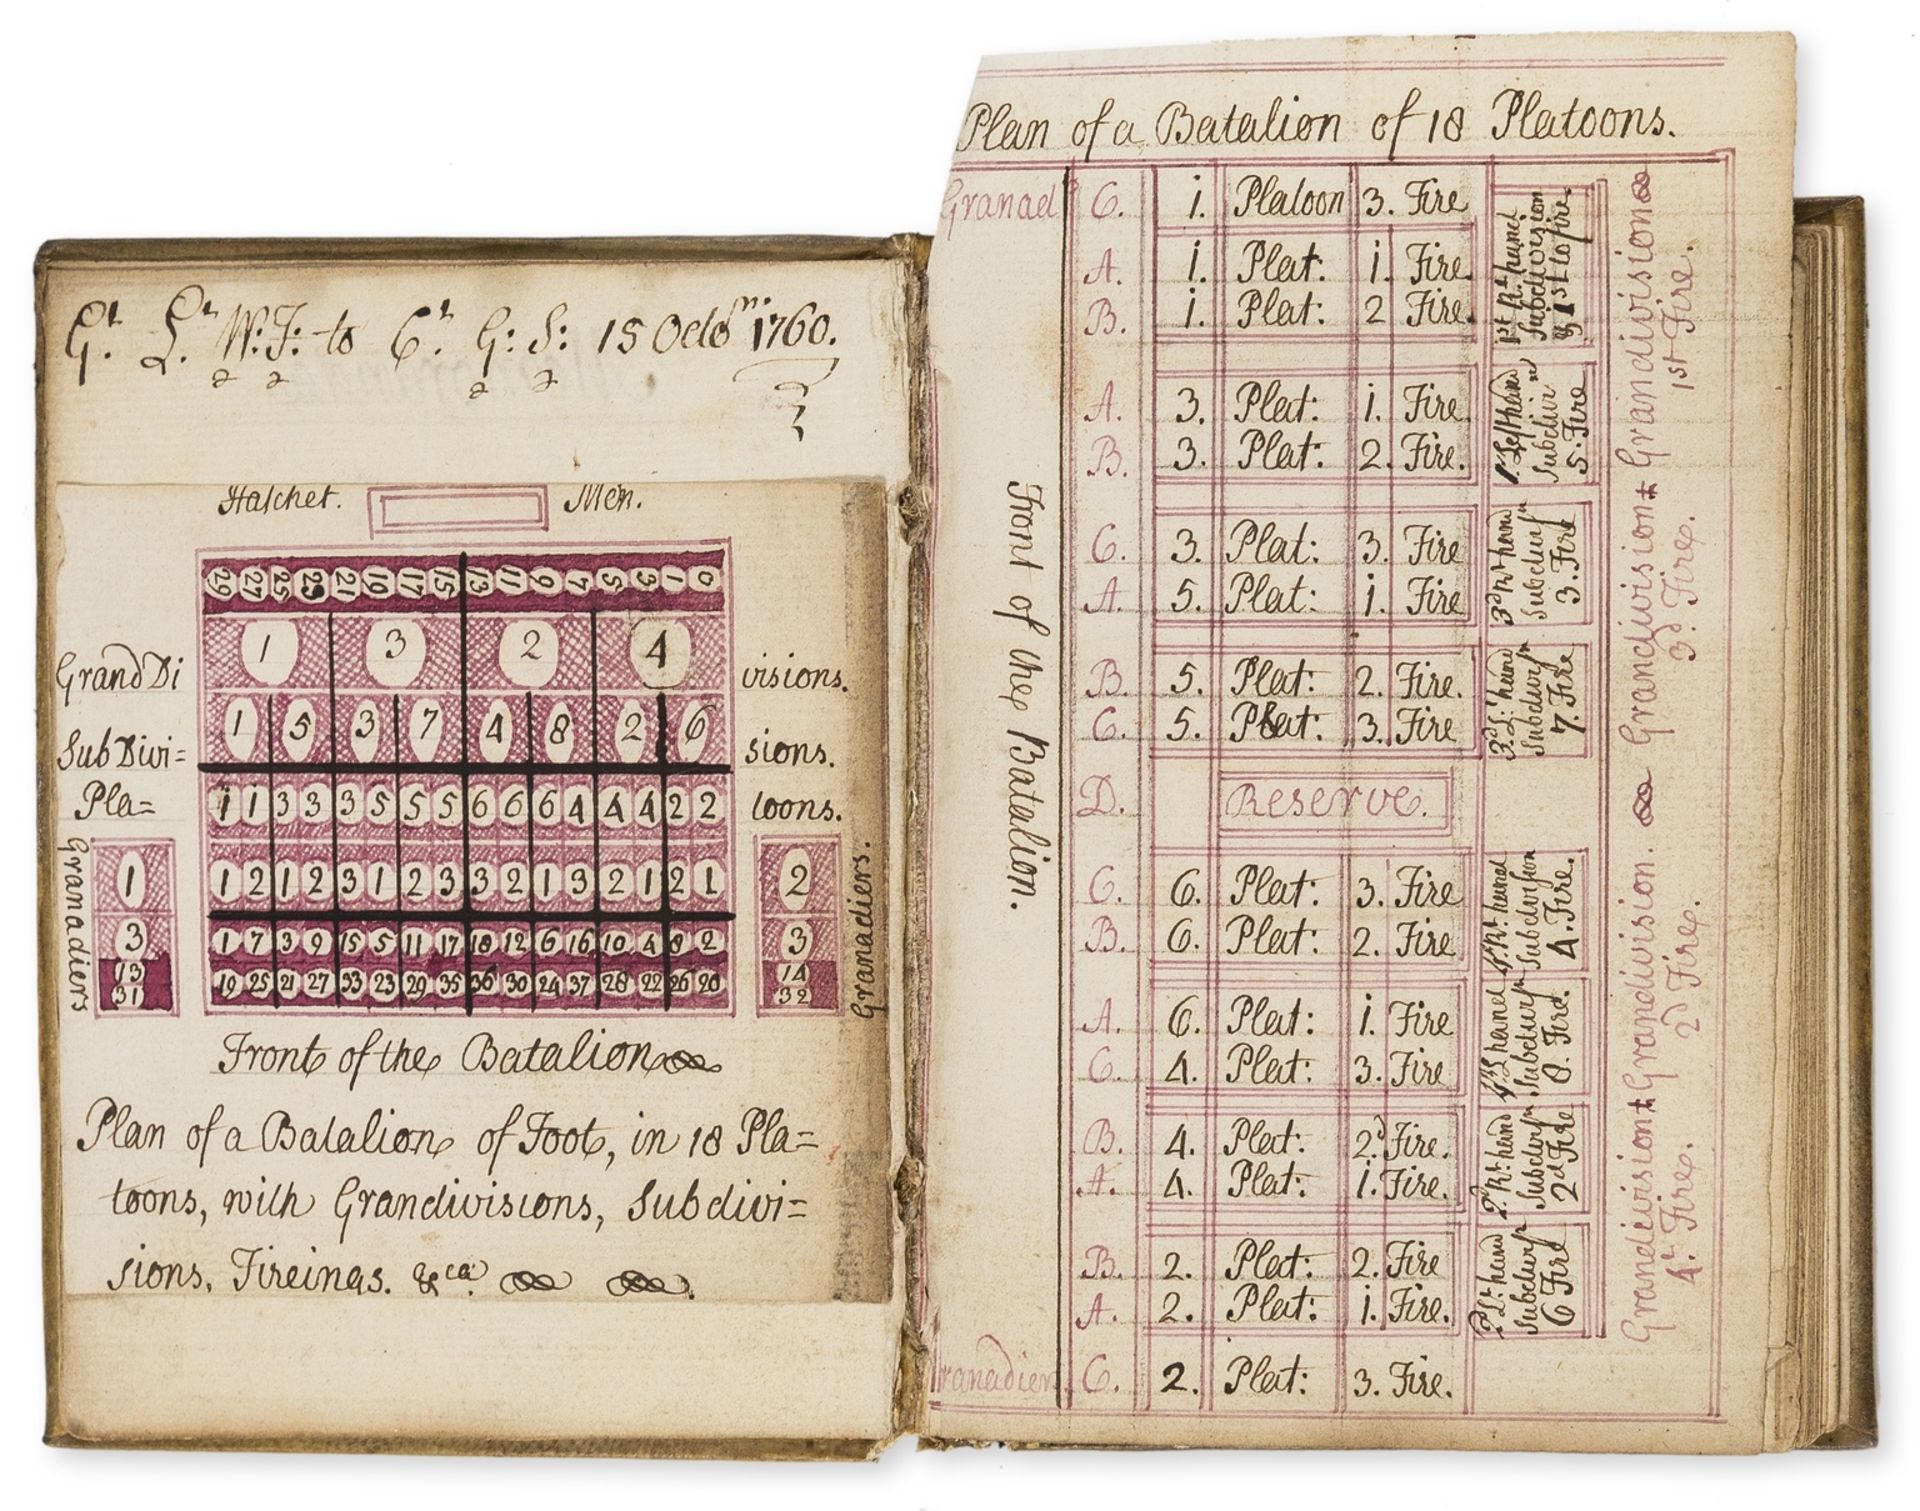 Gt. Lr. W: F: to Cr. G: S: 15 Octobm. 1760.
Hatchet. Men.
29 27 25 23 21 19 17 15 13 11 9 7 5 3 1 0
Grand Di 1 3 2 4 visions.
Sub Divi= 1 5 3 7 4 8 2 6 sions.
Pla= 1 1 3 3 3 5 5 5 6 6 6 4 4 4 2 2 toons.
1 2 1 2 3 1 2 3 3 2 1 3 2 1 2 1
1 7 3 9 15 5 11 17 18 12 6 16 10 4 8 2
19 25 21 27 33 23 29 35 36 30 24 37 28 22 26 20
Granadiers
1
3
13
31
2
3
14
32
Granadiers.
Front of the Batalion
Plan of a Batalion of Foot, in 18 Pla=
toons, with Grandivisions, Subdivi=
sions, Fireings. &ca.
Plan of a Batalion of 18 Platoons.
Granad C. 1. Platoon 3. Fire
A. 1. Plat: 1. Fire.
B. 1. Plat: 2 Fire.
A. 3. Plat: 1. Fire.
B. 3. Plat: 2. Fire.
C. 3. Plat: 3. Fire
A. 5. Plat: 1. Fire
B. 5. Plat: 2. Fire.
C. 5. Plat: 3. Fire
D. Reserve.
C. 6. Plat: 3. Fire
B. 6. Plat: 2. Fire
A. 6. Plat: 1. Fire
C. 4. Plat: 3. Fire
B. 4. Plat: 2d Fire.
A. 4. Plat: 1. Fire.
B. 2. Plat: 2. Fire
A. 2. Plat: 1. Fire.
ranadier. C. 2. Plat: 3. Fire.
Front of the Batalion.
1st Rt. hand
Subdivision
1st to fire
1. Left hand
Subdivin
5. Fire
3d Rt hand
Subdivsn
3. Fire
3d. L: hand
Subdivsn
7. Fire
4. Rt. hand
Subdivision
4. Fire.
4th L hand
Subdivsn
8. Fire.
2d Rt. hand
Subdivsn
2d Fire
2d Lt. hand
Subdivsn
6 Fire
Grandivision
1st Fire.
Grandivision + Grandivision
3d. Fire.
Grandivision.
2d Fire.
Grandivision +
4th. Fire.